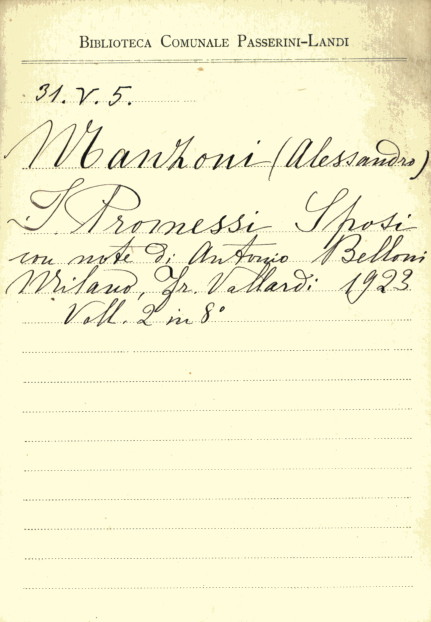 BIBLIOTECA COMUNALE PASSERINI-LANDI
31. V. 5.
Manzoni (Alessandro)
I Promessi Sposi
con note di Antonio Belloni
Milano, Fr. Vallardi 1923
Voll. 2 in 8°